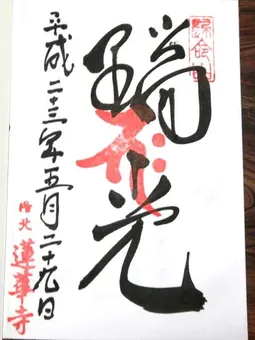 瑞光
平成二十三年五月二十九日
洛北
蓮華寺